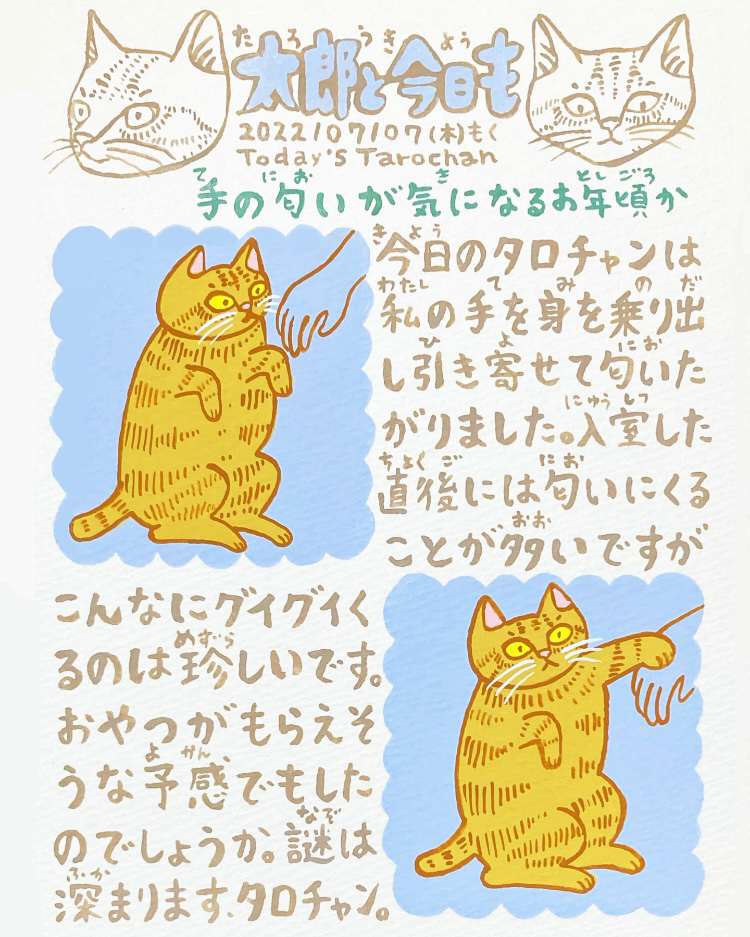 たろうきょう
太郎と今日も
2022/07/07(木)もく
Today's Tarochan
てにおきとしごろ
手の匂いが気になるお年頃か
きょう
今日のタロチャンは
わたしてみのだ
私の手を身を乗り出
ひよにお
し引き寄せて匂いた
がりました。入室した
にゅうしつ
ちょくごにお
直後には匂いにくる
おお
ことが多いですが
こんなにグイグイく
めずら
るのは珍しいです。
おやつがもらえそ
よかん
うな予感でもした
なぞ
のでしょうか。謎は
ふか
深まります、タロチャン。